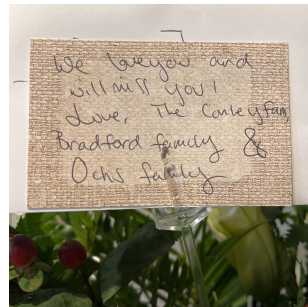 We love you and
will miss you!
Love, The Conley fam
Bradford family &
Ochs family